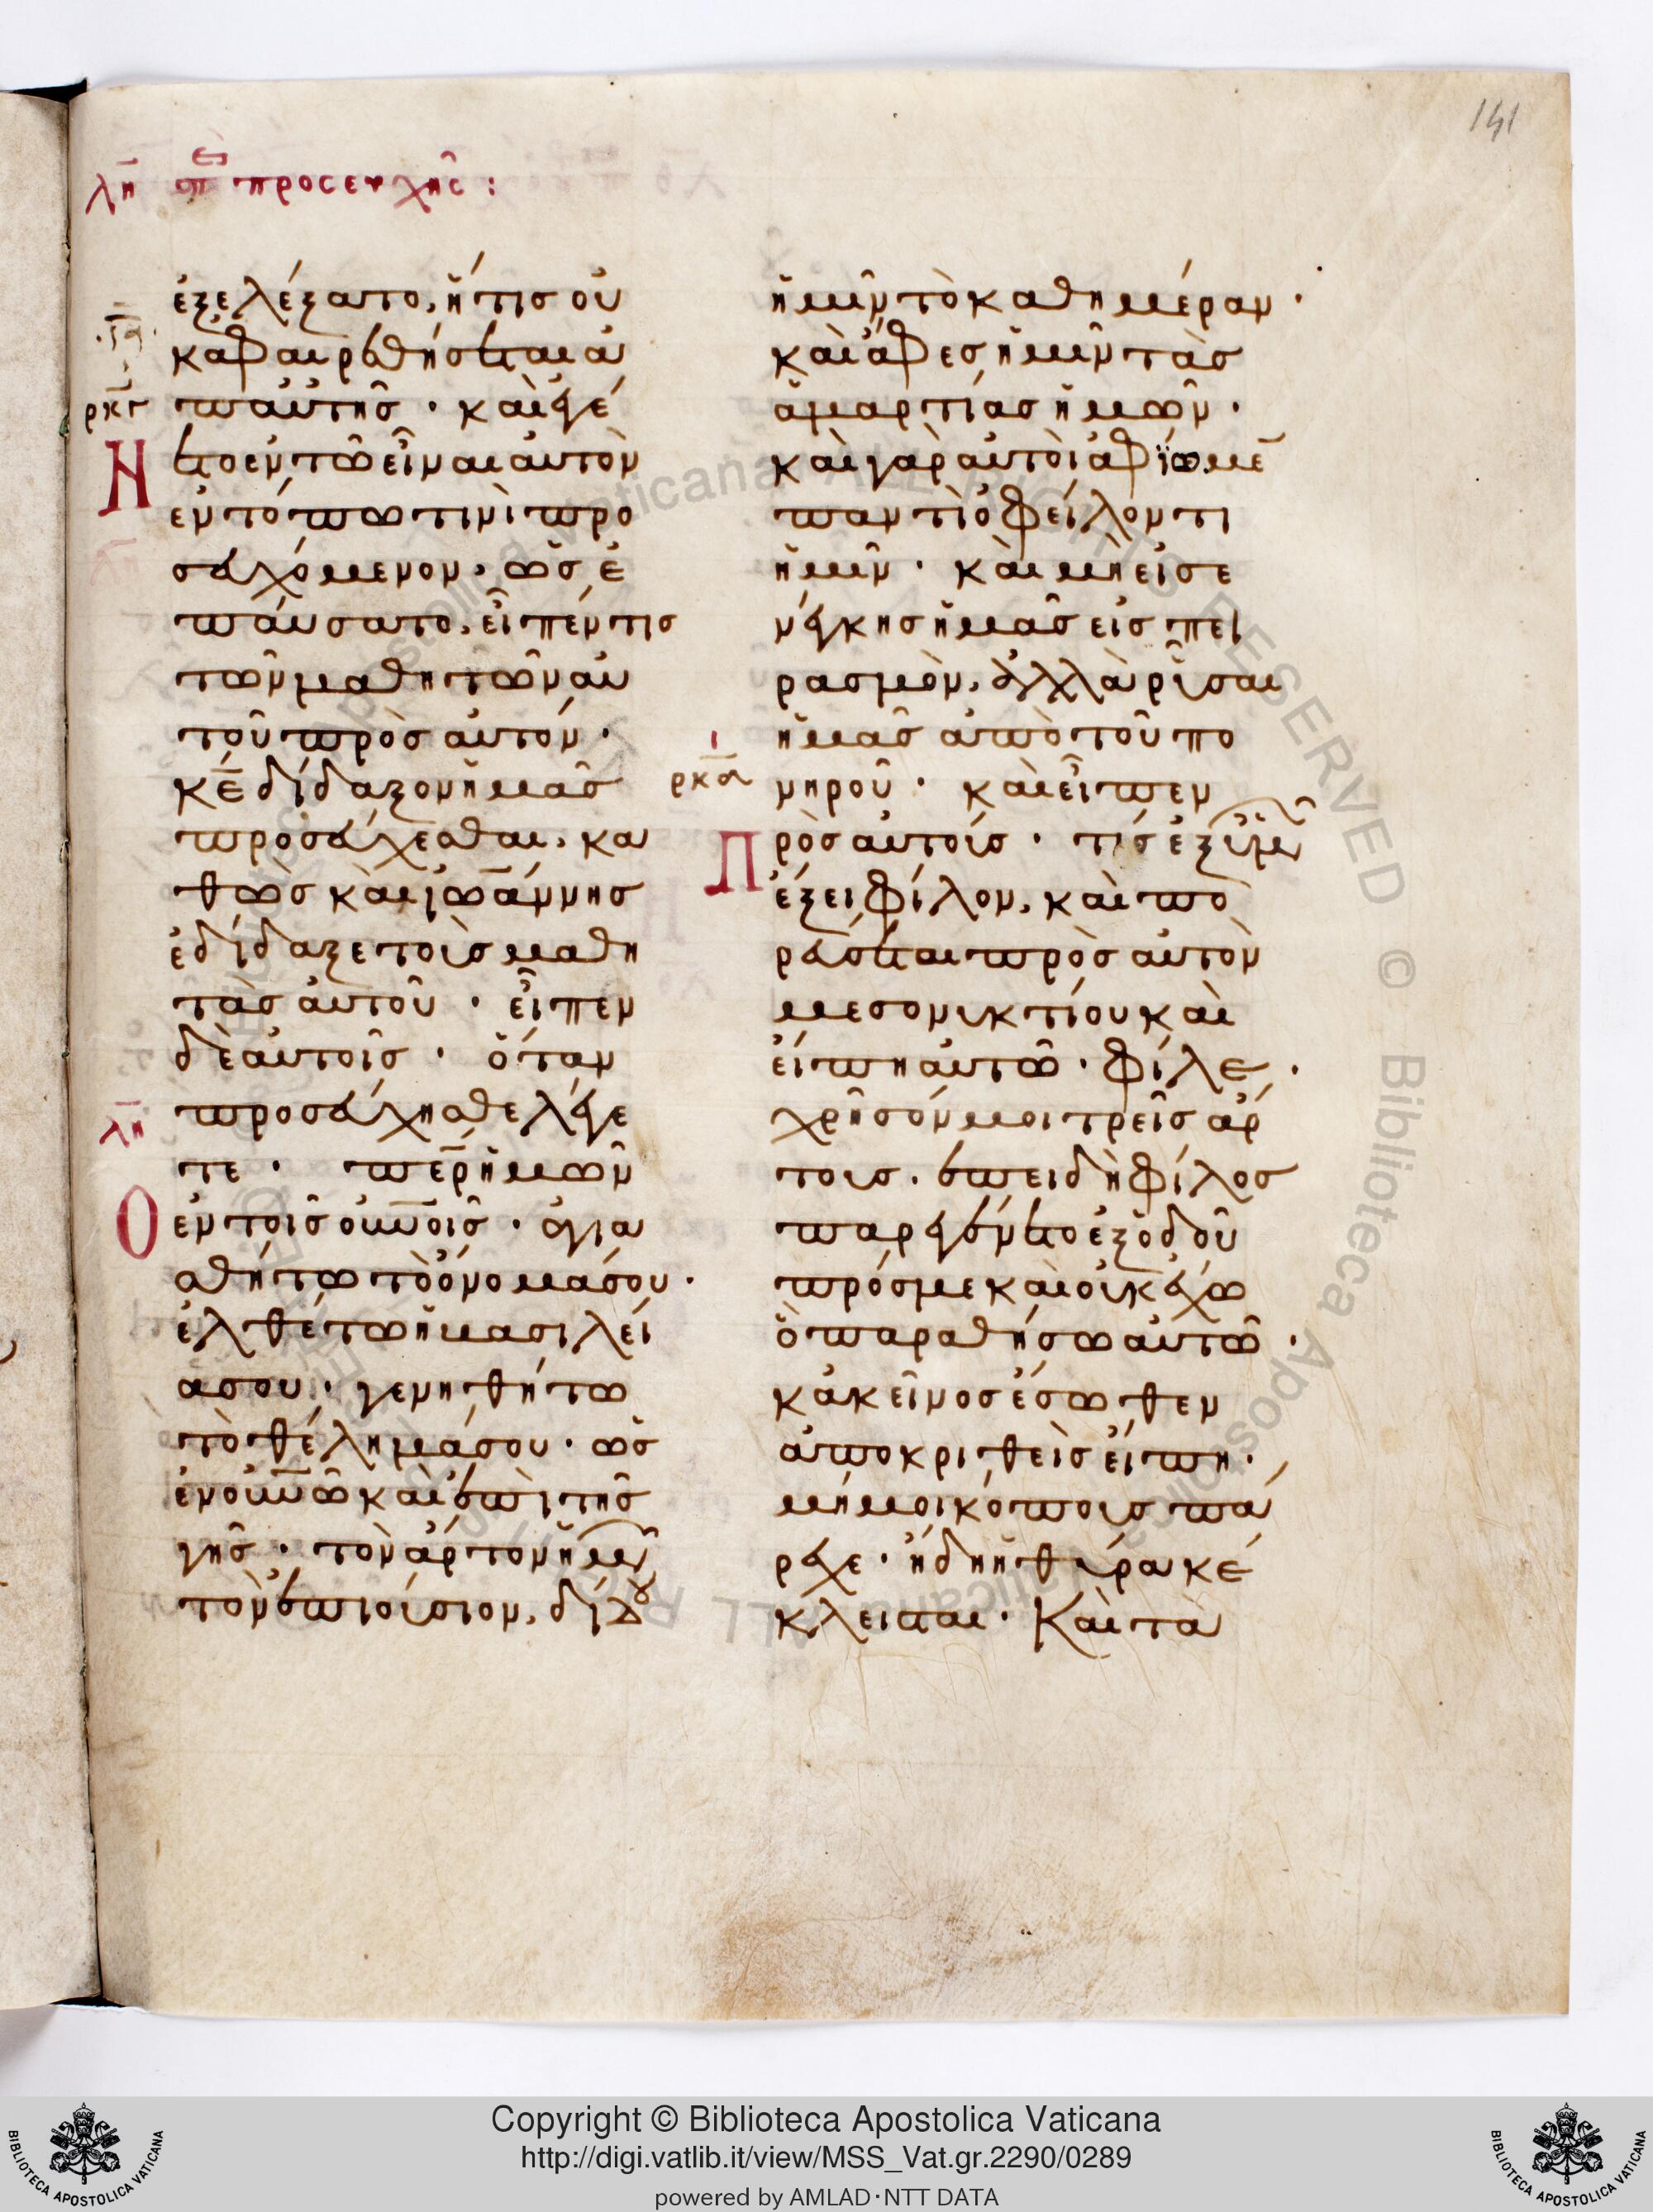 141
λη̄ λε̄ περὶ προσευχῆς:
ἐξελέξατο, ἥτις οὐκ
ἀφαιρεθήσεται ἀ
π' αὐτῆς · καὶ ἐγέ
ρκγ
νετο ἐν τῶ εἶναι αὐτὸν
ἐν τόπω τινὶ προ
σευχόμενον, ὡς ἐ
παύσατο, εἶπέν τις
τῶν μαθητῶν αὐ
τοῦ πρὸς αὐτόν ·
κ̅ε̅ δίδαξον ἡμᾶς
προσεύχεσθαι, κα
θὼς καὶ ἰωάννης
ἐδίδαξε τοὺς μαθη
τὰς αὐτοῦ · εἶπεν
δὲ αὐτοῖς · ὅταν
προσεύχησθε λέγε
τε · π̅ε̅ρ̅ ἡμῶν
Ο
ἐν τοῖς ο̅υ̅ν̅οῖς · ἁγια
σθήτω τὸ ὄνομά σου ·
ἐλθέτω ἡ βασιλεί
α σου · γενηθήτω
τὸ θέλημά σου · ὡς
ἐν ο̅υ̅ν̅ῶ καὶ ἐπὶ τῆς
γῆς · τὸν ἄρτον ἡμῶν
τὸν ἐπιούσιον, δίδου
ἡμῖν τὸ καθημέραν ·
καὶ ἄφες ἡμῖν τὰς
ἁμαρτίας ἡμῶν ·
καὶ γὰρ αὐτοὶ ἀφίομε̅
παντὶ ὀφείλοντι
ἡμῖν · καὶ μὴ εἰσε
νέγκης ἡμᾶς εἰς πει
ρασμὸν, ἀλλὰ ῥῦσαι
ἡμᾶς ἀπὸ τοῦ πο
ρκδ
νηροῦ · καὶ εἶπεν
πρὸς αὐτούς · τίς ἐξ ὑμῶν
ἕξει φίλον, καὶ πο
ρεύσεται πρὸς αὐτὸν
μεσονυκτίου καὶ
εἴπη αὐτῶ · φίλε ·
χρῆσόν μοι τρεῖς ἄρ
τους · ἐπειδὴ φίλος
παρεγένετο ἐξ ὁδοῦ
πρός με καὶ οὐκ ἔχω
ὃ παραθήσω αὐτῶ ·
κἀκεῖνος ἔσωθεν
ἀποκριθεὶς εἴπη ·
μή μοι κόπους πά
ρεχε · ἤδη ἡ θύρα κέ
κλεισται · Καὶ τὰ
Copyright © Biblioteca Apostolica Vaticana
http://digi.vatlib.it/view/MSS_Vat.gr.2290/0289
powered by AMLAD·NTT DATA